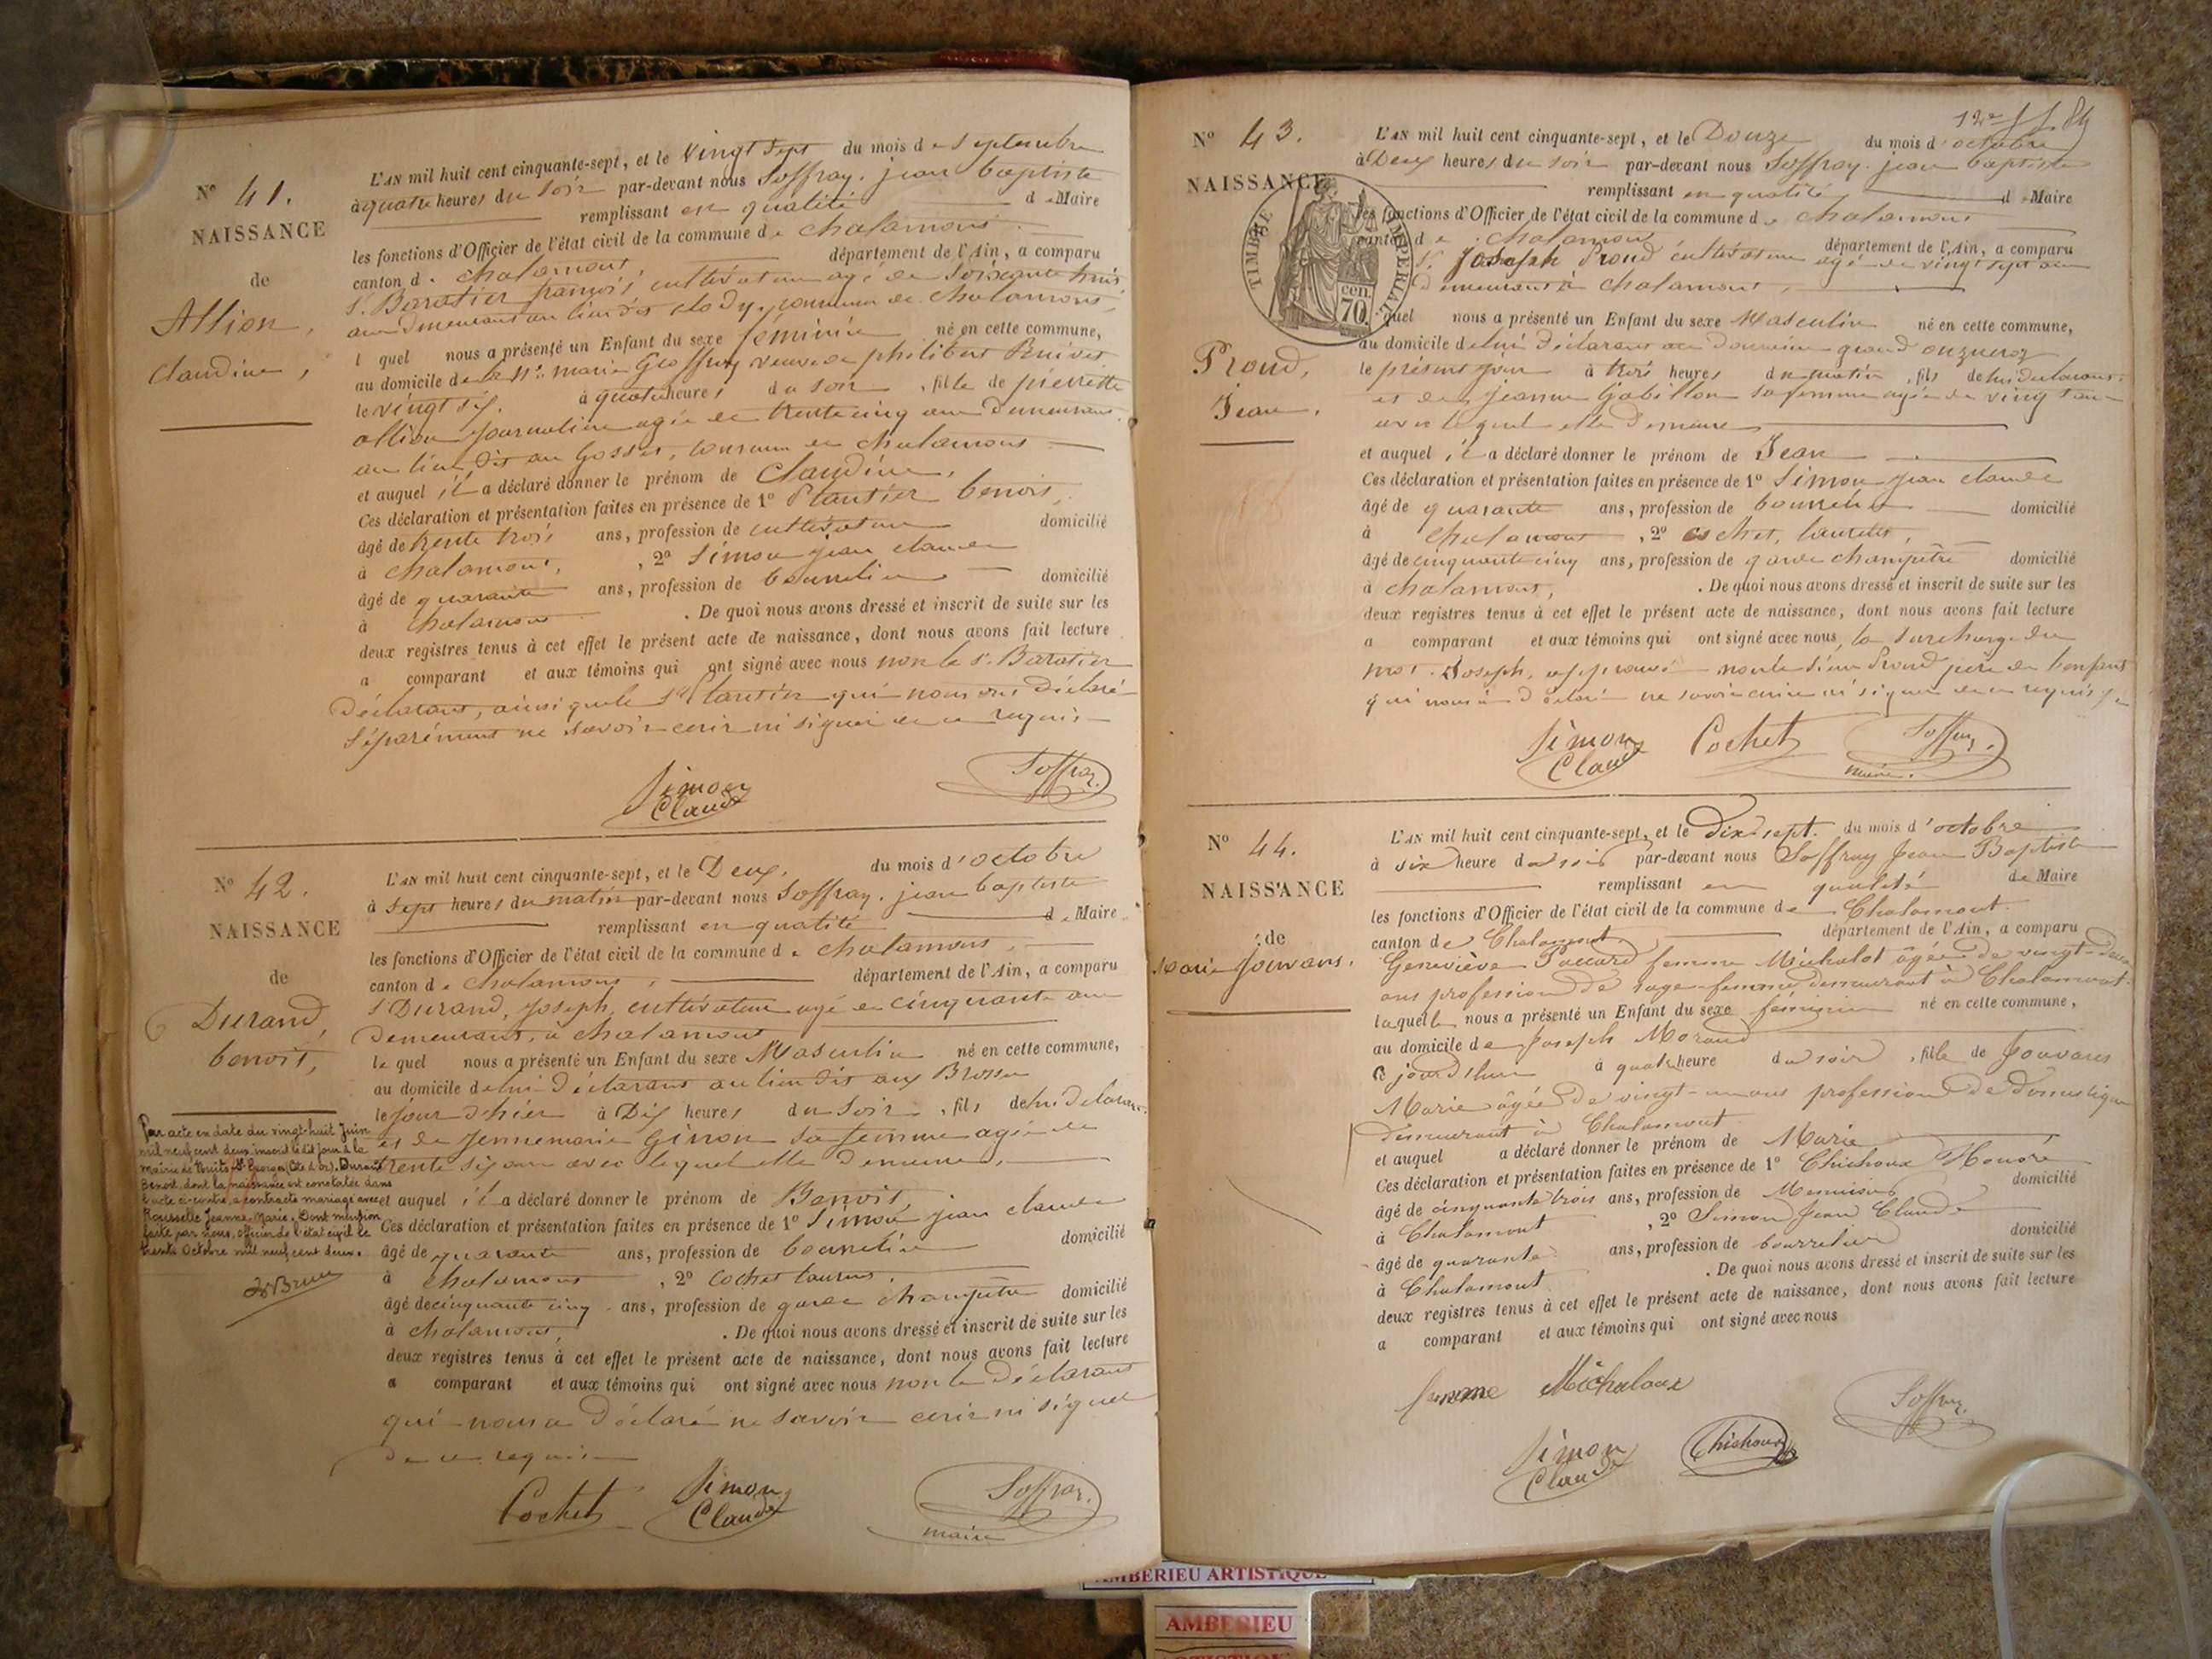 N° 41.
NAISSANCE
de
Allion,
Claudine,
L'AN mil huit cent cinquante-sept, et le vingt sept du mois de septembre
à quatre heures du soir par-devant nous Soffray, jean baptiste
remplissant en qualité de Maire
les fonctions d'Officier de l'état civil de la commune de chalamont
canton de chalamont, département de l'Ain, a comparu
sr. Baratier françois, cultivateur agé de soixante huit
ans demeurant au lieu dit clody, commune de chalamont,
l quel nous a présenté un Enfant du sexe féminin né en cette commune,
au domicile de la marie Geoffray veuve de philibert
le vingt six. à quatre heures du soir, fille de pierrette
allion journalière agée de trente cinq ans demeurant
au lieu dit au Gosset, commune de chalamont
et auquel il a déclaré donner le prénom de Claudine,
Ces déclaration et présentation faites en présence de 1° Plantier benoit,
âgé de trente trois ans, profession de cultivateur domicilié
à chalamont, , 2° Simon jean claude
âgé de quarante ans, profession de bourrelier domicilié
à chalamont . De quoi nous avons dressé et inscrit de suite sur les
deux registres tenus à cet effet le présent acte de naissance, dont nous avons fait lecture
a comparant et aux témoins qui ont signé avec nous non le sr. Baratier
déclarant, ainsi que le sr Plantier qui nous ont déclaré
séparément ne savoir ecrire ni signer de ce requis
Simon
Claude
Soffray
N° 42.
NAISSANCE
de
Durand,
benoit,
L'AN mil huit cent cinquante-sept, et le Deux, du mois d'octobre
à sept heures du matin par-devant nous Soffray, jean baptiste
remplissant en qualité de Maire
les fonctions d'Officier de l'état civil de la commune de chalamont
canton de chalamont, département de l'Ain, a comparu
s Durand, joseph, cultivateur agé de cinquante ans
demeurant, à chalamont
le quel nous a présenté un Enfant du sexe Masculin né en cette commune,
au domicile de lui déclarant au lieu dit aux Brosses
le jour d'hier à Dix heures du soir, fils de lui déclarant
et de Jennemarie Ginon sa femme agée de
trente six ans avec lequel elle demeure,
et auquel il a déclaré donner le prénom de Benoit
Ces déclaration et présentation faites en présence de 1° Simon jean claude
âgé de quarante ans, profession de bourrelier domicilié
à chalamont , 2° Cochet laurent.
âgé de cinquante cinq ans, profession de garde champêtre domicilié
à chalamont, . De quoi nous avons dressé et inscrit de suite sur les
deux registres tenus à cet effet le présent acte de naissance, dont nous avons fait lecture
a comparant et aux témoins qui ont signé avec nous non le déclarant
qui nous a déclaré ne savoir ecrire ni signer
de ce requis
Par acte en date du vingt-huit Juin
mil neuf cent deux, inscrit le dit jour à la
mairie de Nuits-St-Georges (Côte d'Or), Durand
Benoit, dont la naissance est constatée dans
l'acte ci-contre, a contracté mariage avec
Rousselle Jeanne Marie. Dont mention
faite par nous, officier de l'état civil le
trente Octobre mil neuf cent deux.
Cochet
Simon
Claude
Soffray
maire
N° 43.
NAISSANCE
TIMBRE IMPERIAL
cen.
70
Proud,
Jean,
84
L'AN mil huit cent cinquante-sept, et le Douze du mois d'octobre
à Deux heures du soir par-devant nous Soffray, jean baptiste
remplissant en qualité de Maire
les fonctions d'Officier de l'état civil de la commune de chalamont
canton de chalamont département de l'Ain, a comparu
sr. joseph Proud cultivateur agé de vingt sept ans
demeurant à chalamont,
quel nous a présenté un Enfant du sexe Masculin né en cette commune,
au domicile de lui déclarant au domaine grand
le présent jour à trois heures du matin, fils de lui déclarant
et de jeanne Gobillon sa femme agée de vingt ans
avec lequel elle demeure
et auquel il a déclaré donner le prénom de Jean
Ces déclaration et présentation faites en présence de 1° Simon jean claude
âgé de quarante ans, profession de bourrelier domicilié
à chalamont , 2° cochet, laurent,
âgé de cinquante cinq ans, profession de garde champêtre domicilié
à chalamont, . De quoi nous avons dressé et inscrit de suite sur les
deux registres tenus à cet effet le présent acte de naissance, dont nous avons fait lecture
a comparant et aux témoins qui ont signé avec nous, la surcharge du
mot Joseph, approuvé non le sieur Proud père de l'enfant
qui nous a déclaré ne savoir ecrire ni signer de ce requis
Simon
Claude
Cochet
Soffray
maire.
N° 44.
NAISSANCE
de
Marie Jouvans.
L'AN mil huit cent cinquante-sept, et le Dix-sept. du mois d'octobre
à six heure du soir par-devant nous Soffray Jean Baptiste
remplissant en qualité de Maire
les fonctions d'Officier de l'état civil de la commune de Chalamont
canton de Chalamont département de l'Ain, a comparu
Geneviève Paccard femme Michalot âgée de vingt-deux
ans profession de sage-femme demeurant à Chalamont
laquelle nous a présenté un Enfant du sexe féminin né en cette commune,
au domicile de Joseph Morand
Ce jourd'hui à quatre heure du soir, fille de Jouvans
Marie âgée de vingt-un ans profession de domestique
demeurant à Chalamont
et auquel a déclaré donner le prénom de Marie
Ces déclaration et présentation faites en présence de 1° Chichoux Honoré
âgé de cinquante trois ans, profession de Menuisier domicilié
à Chalamont , 2° Simon Jean Claude
âgé de quarante ans, profession de bourrelier domicilié
à Chalamont . De quoi nous avons dressé et inscrit de suite sur les
deux registres tenus à cet effet le présent acte de naissance, dont nous avons fait lecture
a comparant et aux témoins qui ont signé avec nous
femme Michaloux
Simon
Claude
Chichoux
Soffray
AMBERIEU ARTISTIQUE
AMBERIEU
ARTISTIQUE